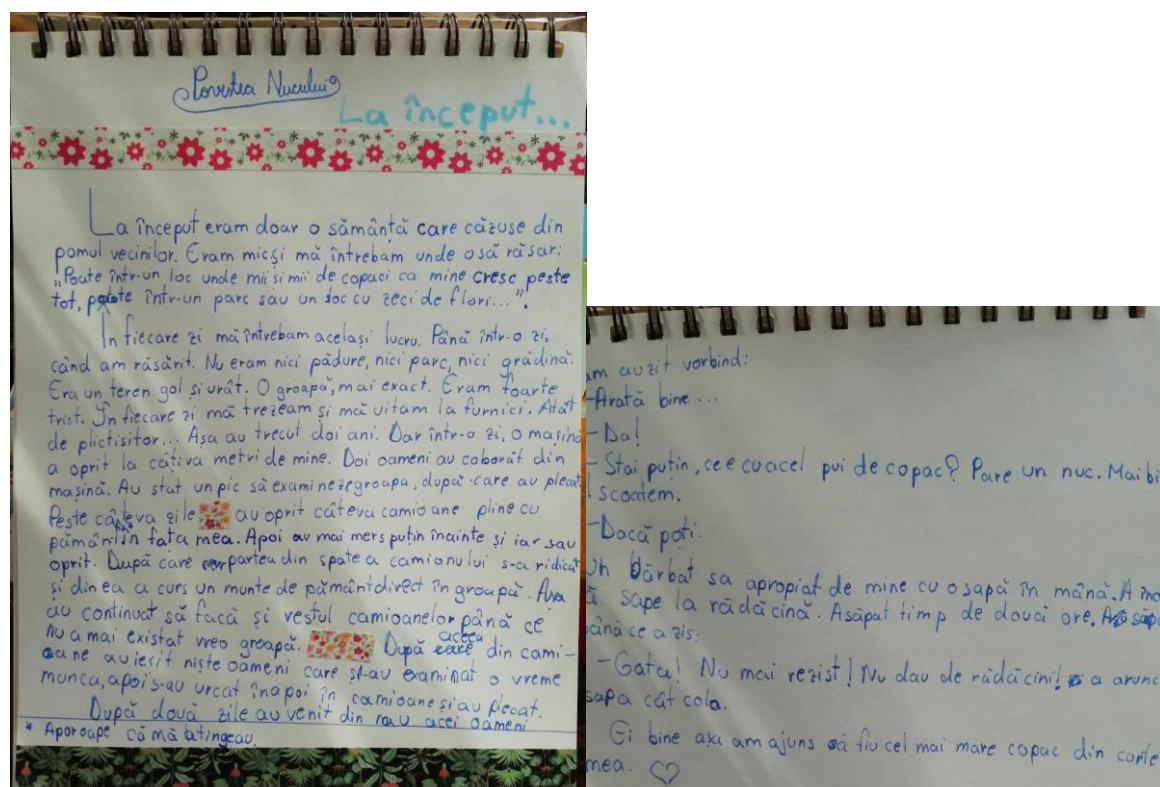 Povestea Nucului
La început...
La început eram doar o sămânță care căzuse din
pomul vecinilor. Eram mic și mă întrebam unde o să răsar:
„Poate într-un loc unde mii și mii de copaci ca mine cresc peste
tot, poate într-un parc sau un loc cu zeci de flori...".
În fiecare zi mă întrebam același lucru. Până într-o zi,
când am răsărit. Nu eram nici pădure, nici parc, nici grădină.
Era un teren gol și urât. O groapă, mai exact. Eram foarte
trist. În fiecare zi mă trezeam și mă uitam la furnici. Atât
de plictisitor... Așa au trecut doi ani. Dar într-o zi, o mașină
a oprit la câtiva metri de mine. Doi oameni au coborât din
mașină. Au stat un pic să examineze groapa, după care au plecat.
Peste câteva zile au oprit câteva camioane pline cu
pământ în fața mea. Apoi au mai mers puțin înainte și iar sau
oprit. După care partea din spate a camionului s-a ridicat
și din ea a curs un munte de pământ direct în groapă. Așa
au continuat să facă și restul camioanelor până ce
nu a mai existat vreo groapă. După aceea din cami-
oane au ieșit niște oameni care și-au examinat o vreme
munca, apoi s-au urcat înapoi în camioane și au plecat.
După două zile au venit din nou acei oameni
* Aporoape că mă atingeau.
am auzit vorbind:
-Arată bine...
- Da!
- Stai puțin, ce e cu acel pui de copac? Pare un nuc. Mai bi
l scoatem.
-Dacă poți.
Un bărbat sa apropiat de mine cu o sapă în mână. A înc
ă sape la rădăcină. A săpat timp de două ore. A săpa
până ce a zis:
-Gata! Nu mai rezist! Nu dau de rădăcini! a arunc
sapa cât cola.
Ei bine așa am ajuns să fiu cel mai mare copac din curte
mea.